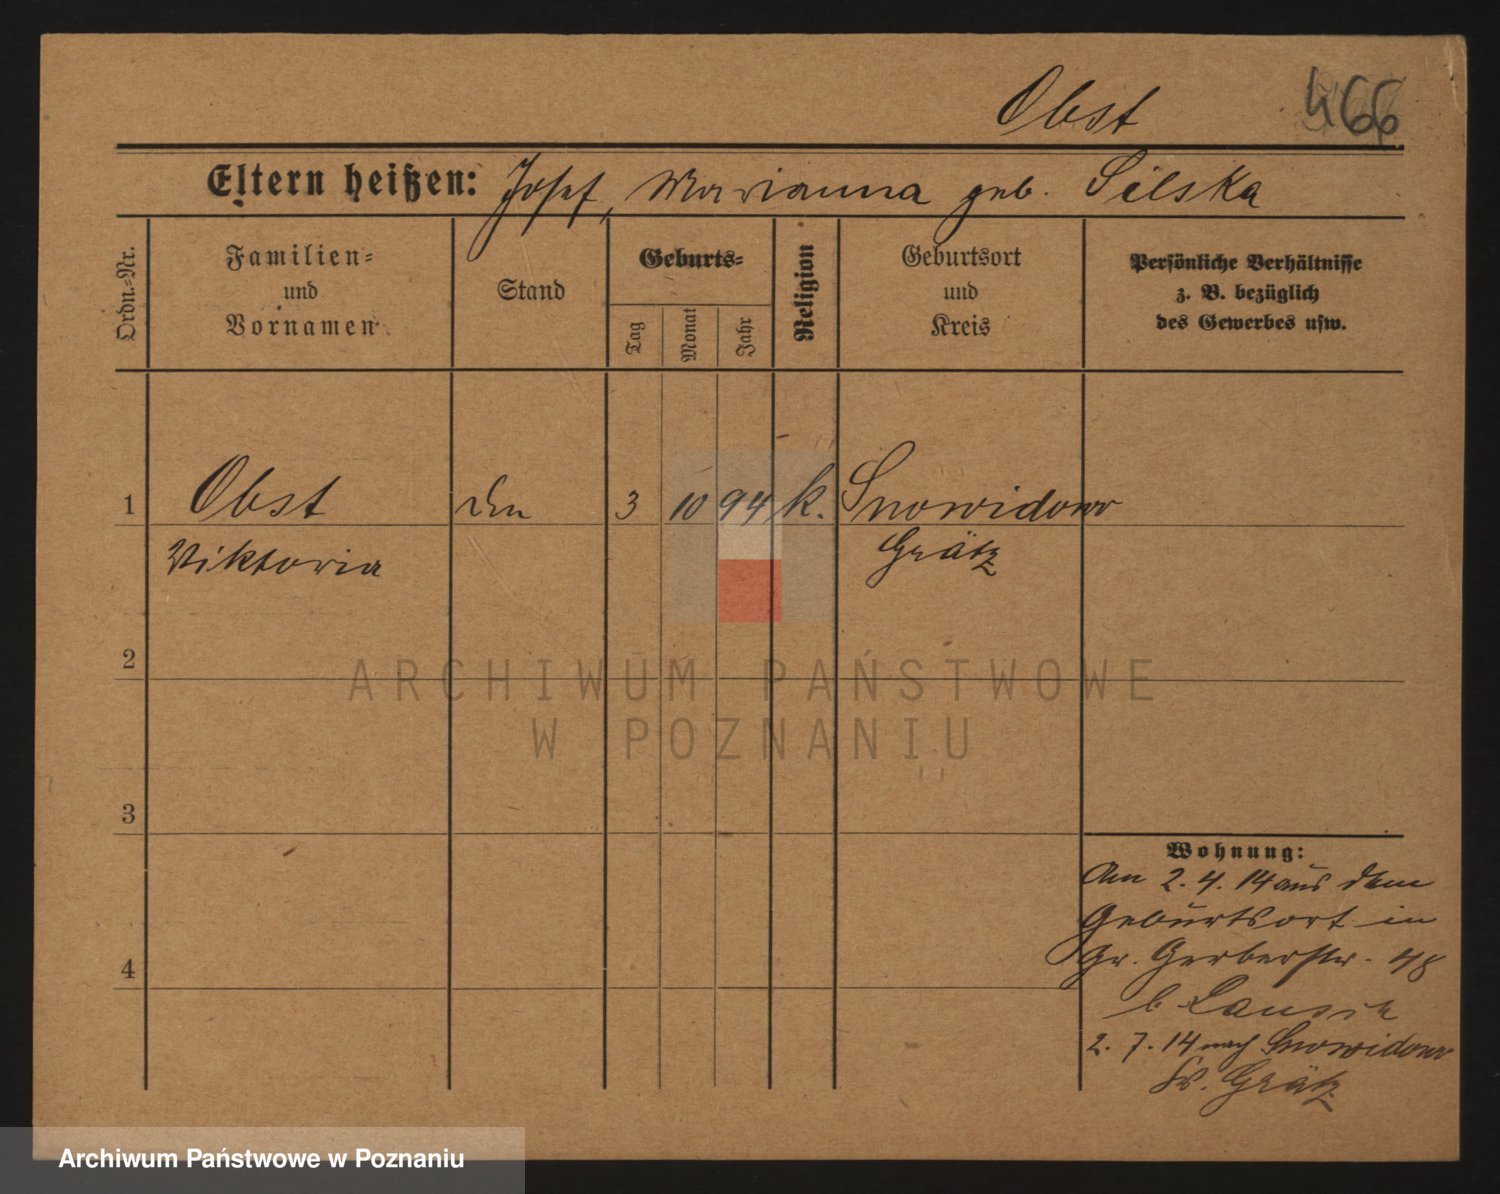 Obst 466
Eltern heißen: Josef, Marianna geb. Silska
Ordn.-Nr.
Familien-
und
Vornamen
Stand
Geburts-
Tag
Monat
Jahr
Religion
Geburtsort
und
Kreis
Persönliche Verhältnisse
z. B. bezüglich
des Gewerbes usw.
1 Obst 3 10 94 k. Snowidowo
Viktoria Grätz
2
ARCHIWUM PAŃSTWOWE
W POZNANIU
3
Wohnung:
Am 2. 4. 14 aus dem
Geburtsort in
4 Gr. Gerberstr. 48
b.
2. 7. 14 nach Snowidowo
Grätz
Archiwum Państwowe w Poznaniu